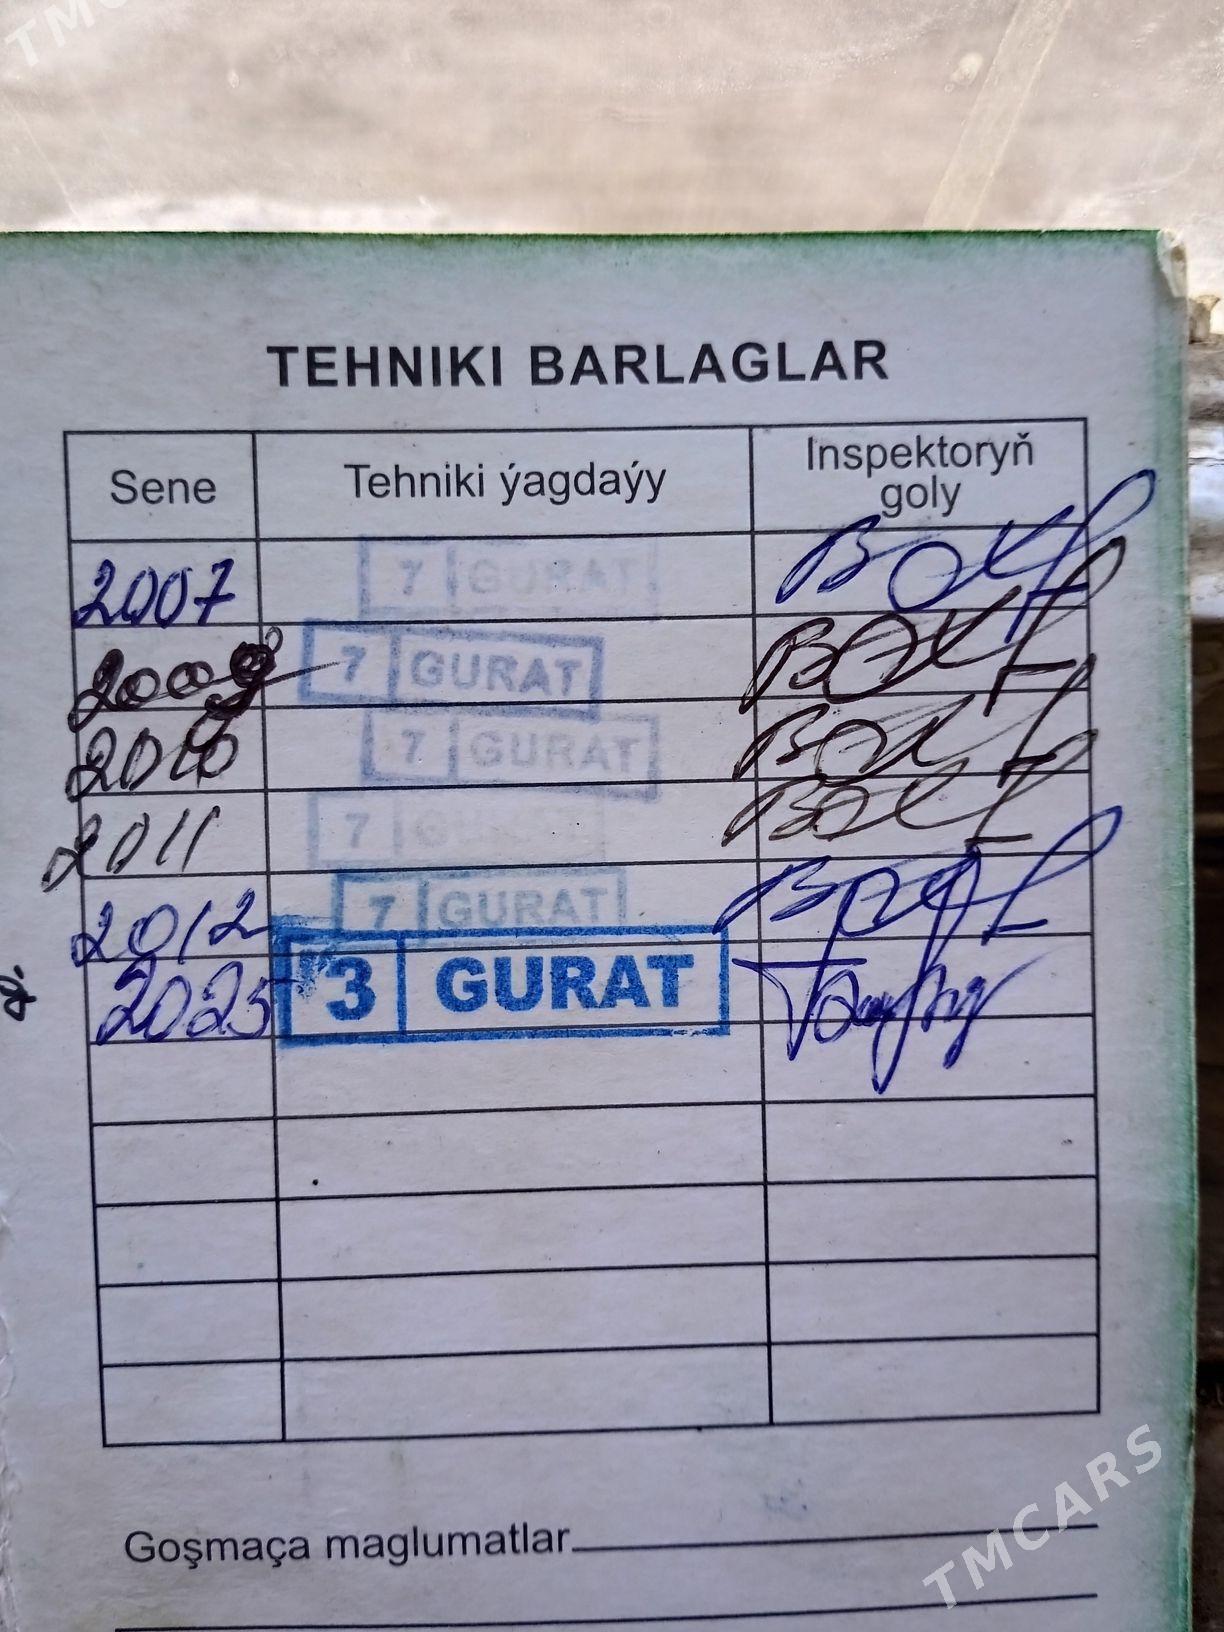 TEHNIKI BARLAGLAR
Sene Tehniki ýagdaýy Inspektoryň goly
2007 7 GURAT
7 GURAT
2010 7 GURAT
2011 7
2012 7 GURAT
2025 3 GURAT
Goşmaça maglumatlar
TMCARS